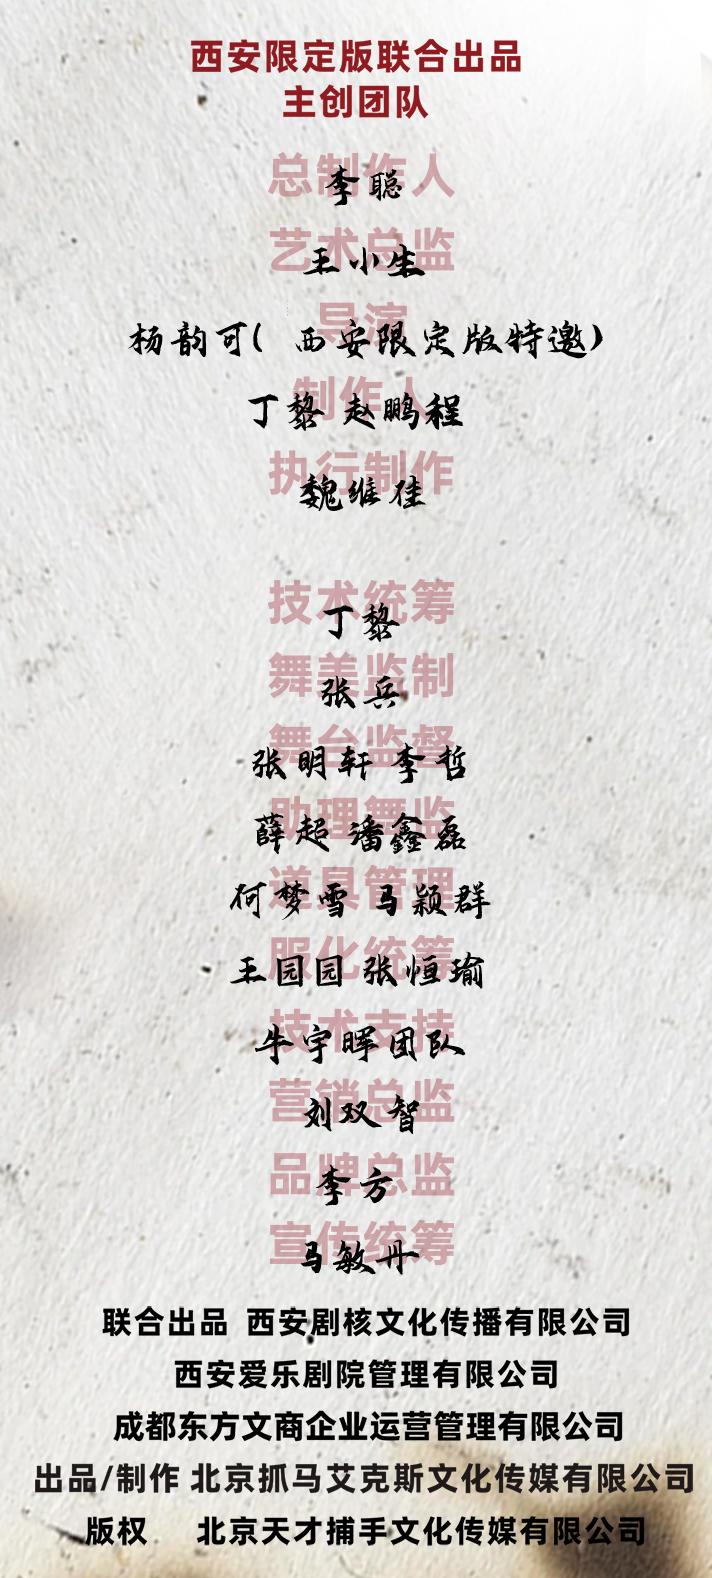 西安限定版联合出品
主创团队
总制作人
李聪
艺术总监
王小生
导演
杨韵可(西安限定版特邀)
制作人
丁黎 赵鹏程
执行制作
魏维佳
技术统筹
丁黎
舞美监制
张兵
舞台监督
张明轩 李哲
助理舞监
薛超 潘鑫磊
道具管理
何梦雪 马颖群
服化统筹
王园园 张恒瑜
技术支持
牛宇晖团队
营销总监
刘双智
品牌总监
李方
宣传统筹
马敏丹
联合出品 西安剧核文化传播有限公司
西安爱乐剧院管理有限公司
成都东方文商企业运营管理有限公司
出品/制作 北京抓马艾克斯文化传媒有限公司
版权 北京天才捕手文化传媒有限公司